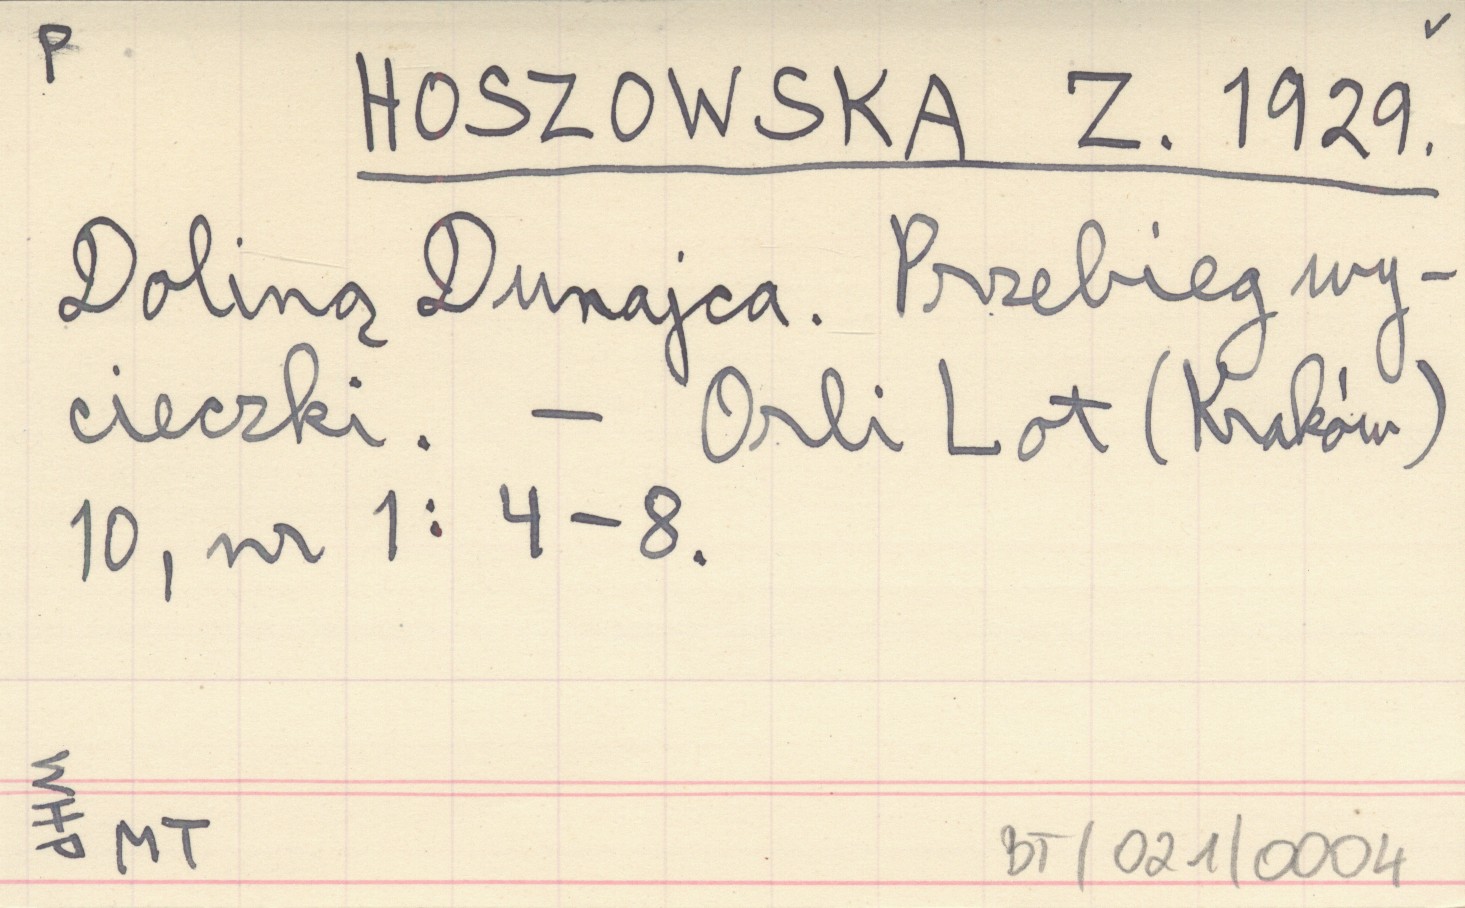 P
HOSZOWSKA Z. 1929.
Doliną Dunajca. Przebieg wy-
cieczki. — Orli Lot (Kraków)
10, nr 1: 4-8.
WHP
MT
BT/021/0004